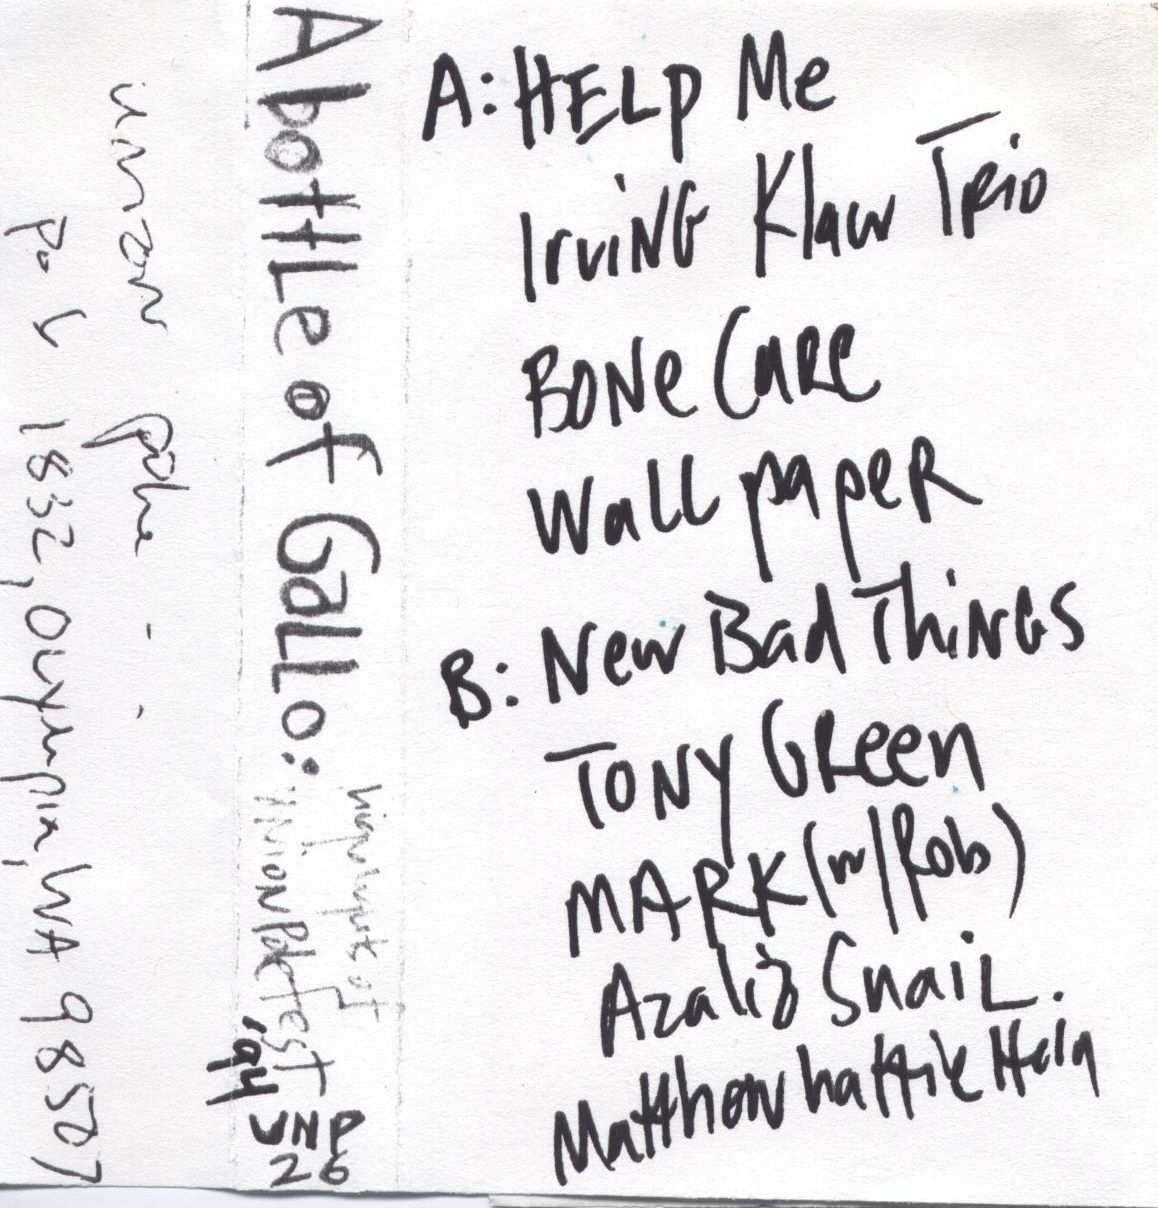 A: HELP Me
Irving Klaw Trio
BONe CaRe
Wall paper
B: New Bad Things
TONY GReen
MARK (w/Rob)
Azalia SnaiL.
Matthew hattie Hein
A bottLe of GaLLo:
highlights of
UNION Pole fest
'94
UNP
26
union pole - -
po b 1832, OLYMpia, WA 98507